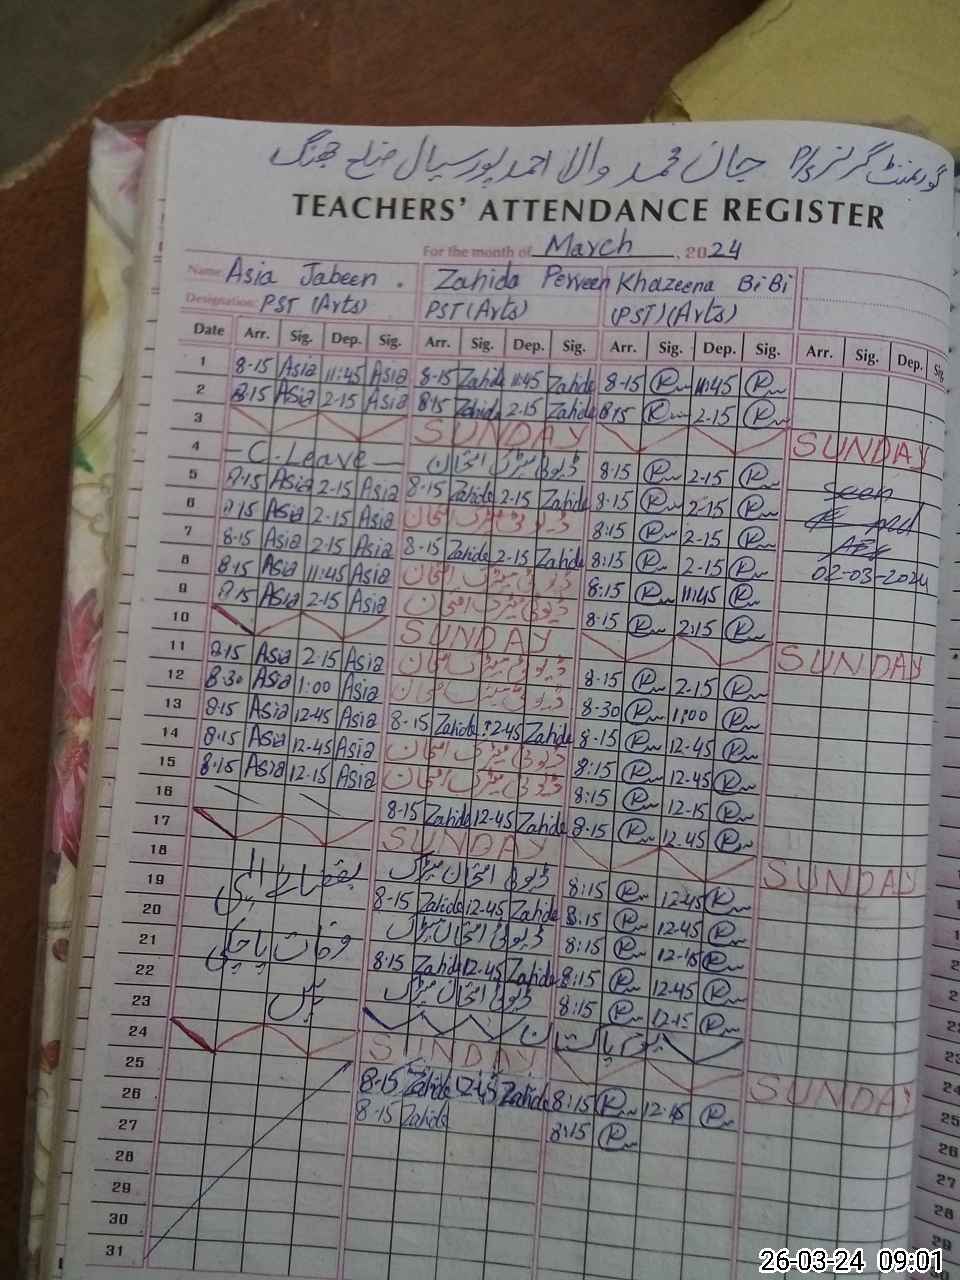 گورنمنٹ گرلز P/S جان محمد والا احمد پور سیال ضلع جھنگ
TEACHERS' ATTENDANCE REGISTER
For the month of March, 2024
Name: Asia Jabeen . Zahida Perveen Khazeena BiBi
Designation: PST (Arts) PST (Arts) (PST) (Arts)
Date Arr. Sig. Dep. Sig. Arr. Sig. Dep. Sig. Arr. Sig. Dep. Sig. Arr. Sig. Dep. Sig.
1 8-15 Asia 11:45 Asia 8-15 Zahida 11:45 Zahida 8-15 11:45
2 8:15 Asia 2-15 Asia 8:15 Zahida 2-15 Zahida 8:15 2-15
3 SUNDAY SUNDAY
4 -C.Leave- ڈیوٹی میٹرک امتحان 8:15 2-15
5 8-15 Asia 2-15 Asia 8-15 Zahida 2-15 Zahida 8-15 2-15 Seen
6 8:15 Asia 2-15 Asia ڈیوٹی میٹرک امتحان 8:15 2-15
7 8-15 Asia 2-15 Asia 8-15 Zahida 2-15 Zahida 8:15 2-15
8 8-15 Asia 11:45 Asia ڈیوٹی میٹرک امتحان 8:15 11:45 02-03-2024
9 8:15 Asia 2-15 Asia ڈیوٹی میٹرک امتحان 8:15 2:15
10 SUNDAY SUNDAY
11 8:15 Asia 2-15 Asia ڈیوٹی میٹرک امتحان 8-15 2-15
12 8-30 Asia 1:00 Asia ڈیوٹی میٹرک امتحان 8-30 1:00
13 8-15 Asia 12-45 Asia 8-15 Zahida 12-45 Zahida 8-15 12-45
14 8-15 Asia 12-45 Asia ڈیوٹی میٹرک امتحان 8:15 12-45
15 8-15 Asia 12-15 Asia ڈیوٹی میٹرک امتحان 8:15 12-15
16 8-15 Zahida 12-45 Zahida 8-15 12-45
17 SUNDAY SUNDAY
18 بقضائے الٰہی ڈیوٹی امتحان میٹرک 8:15 12-45
19 8-15 Zahida 12-45 Zahida 8:15 12-45
20 وفات پا چکی ڈیوٹی امتحان میٹرک 8:15 12-15
21 8-15 Zahida 12-45 Zahida 8:15 12-45
22 ہیں ڈیوٹی امتحان میٹرک 8:15 12-15
23 یوم پاکستان
24 SUNDAY SUNDAY
25 8-15 Zahida 12-45 Zahida 8:15 12-45
26 8-15 Zahida 8:15
27
28
29
30
31
26-03-24 09:01